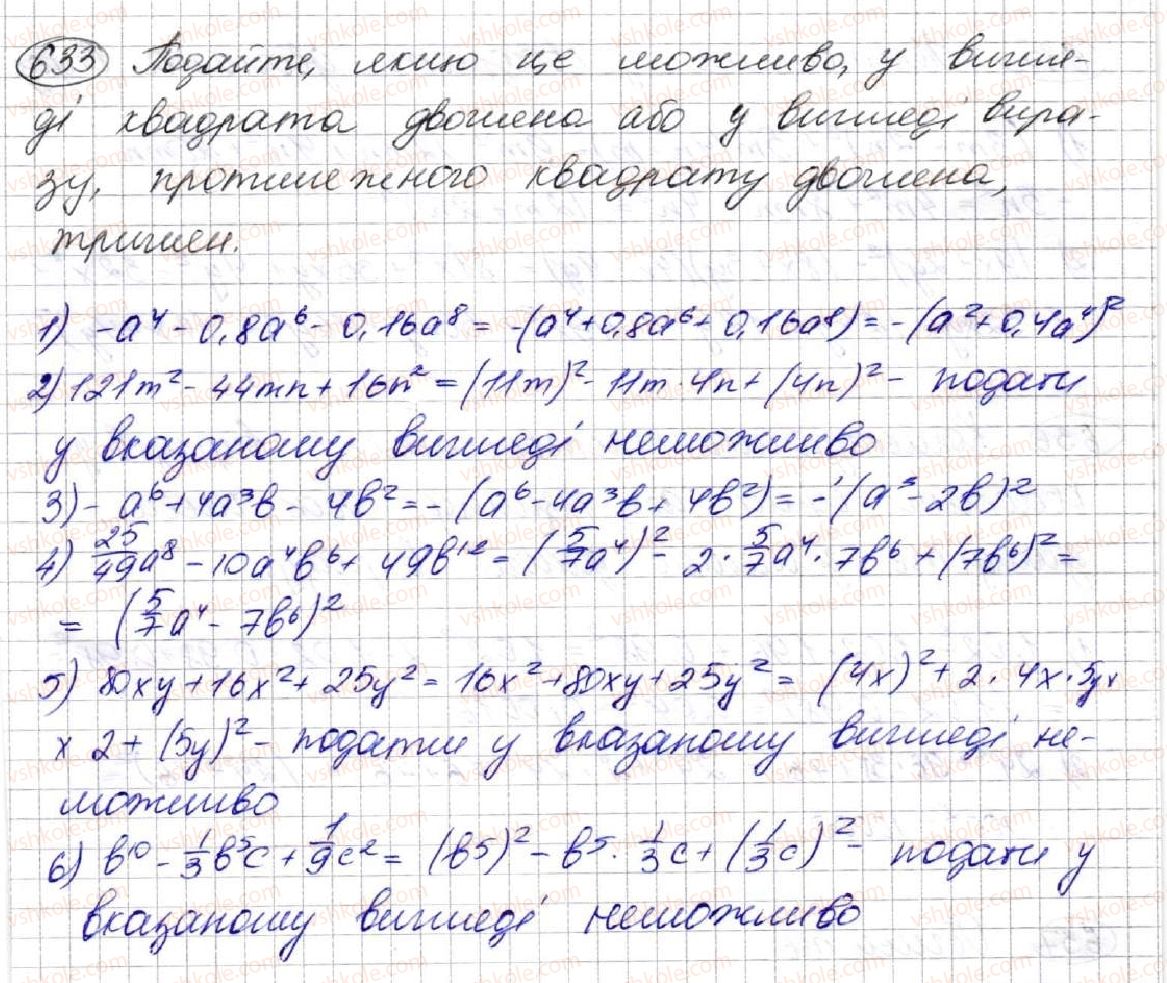 633 Подайте, якщо це можливо, у вигля-
ді квадрата двочлена або у вигляді вира-
зу, протилежного квадрату двочлена,
тричлен.
1) -a⁴ - 0,8a⁶ - 0,16a⁸ = -(a⁴ + 0,8a⁶ + 0,16a⁸) = -(a² + 0,4a⁴)²
2) 121m² - 44mn + 16n² = (11m)² - 11m · 4n + (4n)² - подати
у вказаному вигляді неможливо
3) -a⁶ + 4a³b - 4b² = -(a⁶ - 4a³b + 4b²) = -(a³ - 2b)²
4) 25/49a⁸ - 10a⁴b⁶ + 49b¹² = (5/7a⁴)² - 2 · 5/7a⁴ · 7b⁶ + (7b⁶)² =
= (5/7a⁴ - 7b⁶)²
5) 80xy + 16x² + 25y² = 16x² + 80xy + 25y² = (4x)² + 2 · 4x · 5y ×
× 2 + (5y)² - подати у вказаному вигляді не-
можливо
6) b¹⁰ - 1/3b⁵c + 1/9c² = (b⁵)² - b⁵ · 1/3c + (1/3c)² - подати у
вказаному вигляді неможливо